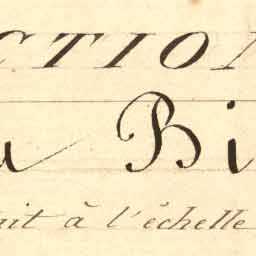 CTION
a Bi
ait à l'échelle